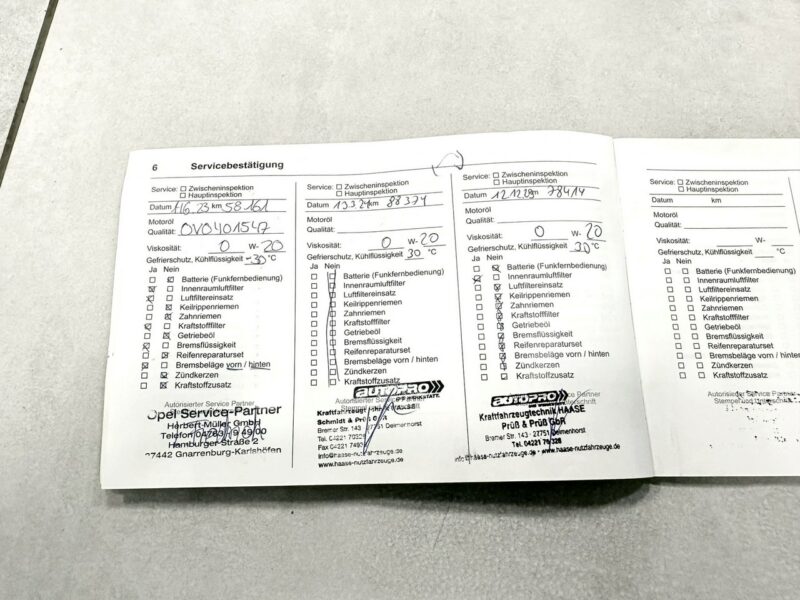 6 Servicebestätigung
Service: Zwischeninspektion
Hauptinspektion
Datum km 58161
Motoröl
Qualität: OV0401547
Viskosität: 0 W- 20
Gefrierschutz, Kühlflüssigkeit -30 °C
Ja Nein
Batterie (Funkfernbedienung)
Innenraumluftfilter
Luftfiltereinsatz
Keilrippenriemen
Zahnriemen
Kraftstofffilter
Getriebeöl
Bremsflüssigkeit
Reifenreparaturset
Bremsbeläge vorn / hinten
Zündkerzen
Kraftstoffzusatz
Autorisierter Service Partner
Opel Service-Partner
Herbert Müller GmbH
Hamburger Straße 2
27442 Gnarrenburg-Karlshöfen
Service: Zwischeninspektion
Hauptinspektion
Datum km 88374
Motoröl
Qualität:
Viskosität: 0 W- 20
Gefrierschutz, Kühlflüssigkeit 30 °C
Ja Nein
Batterie (Funkfernbedienung)
Innenraumluftfilter
Luftfiltereinsatz
Keilrippenriemen
Zahnriemen
Kraftstofffilter
Getriebeöl
Bremsflüssigkeit
Reifenreparaturset
Bremsbeläge vorn / hinten
Zündkerzen
Kraftstoffzusatz
Autorisierter Service Partner
AUTOPRO
Schmidt & Prüß GbR
Bremer Str. 143 27751 Delmenhorst
info@haase-nutzfahrzeuge.de
www.haase-nutzfahrzeuge.de
Service: Zwischeninspektion
Hauptinspektion
Datum km 78414
Motoröl
Qualität:
Viskosität: 0 W- 20
Gefrierschutz, Kühlflüssigkeit 30 °C
Ja Nein
Batterie (Funkfernbedienung)
Innenraumluftfilter
Luftfiltereinsatz
Keilrippenriemen
Zahnriemen
Kraftstofffilter
Getriebeöl
Bremsflüssigkeit
Reifenreparaturset
Bremsbeläge vorn / hinten
Zündkerzen
Kraftstoffzusatz
AUTOPRO
Kraftfahrzeugtechnik HAASE
Prüß & Prüß GbR
Bremer Str. 143 · 27751 Delmenhorst
Tel. 04221 70 328
info@haase-nutzfahrzeuge.de - www.haase-nutzfahrzeuge.de
Service: Zwischeninspektion
Hauptinspektion
Datum km
Motoröl
Qualität:
Viskosität: W-
Gefrierschutz, Kühlflüssigkeit °C
Ja Nein
Batterie (Funkfernbedienung)
Innenraumluftfilter
Luftfiltereinsatz
Keilrippenriemen
Zahnriemen
Kraftstofffilter
Getriebeöl
Bremsflüssigkeit
Reifenreparaturset
Bremsbeläge vorn / hinten
Zündkerzen
Kraftstoffzusatz
Autorisierter Service Partner